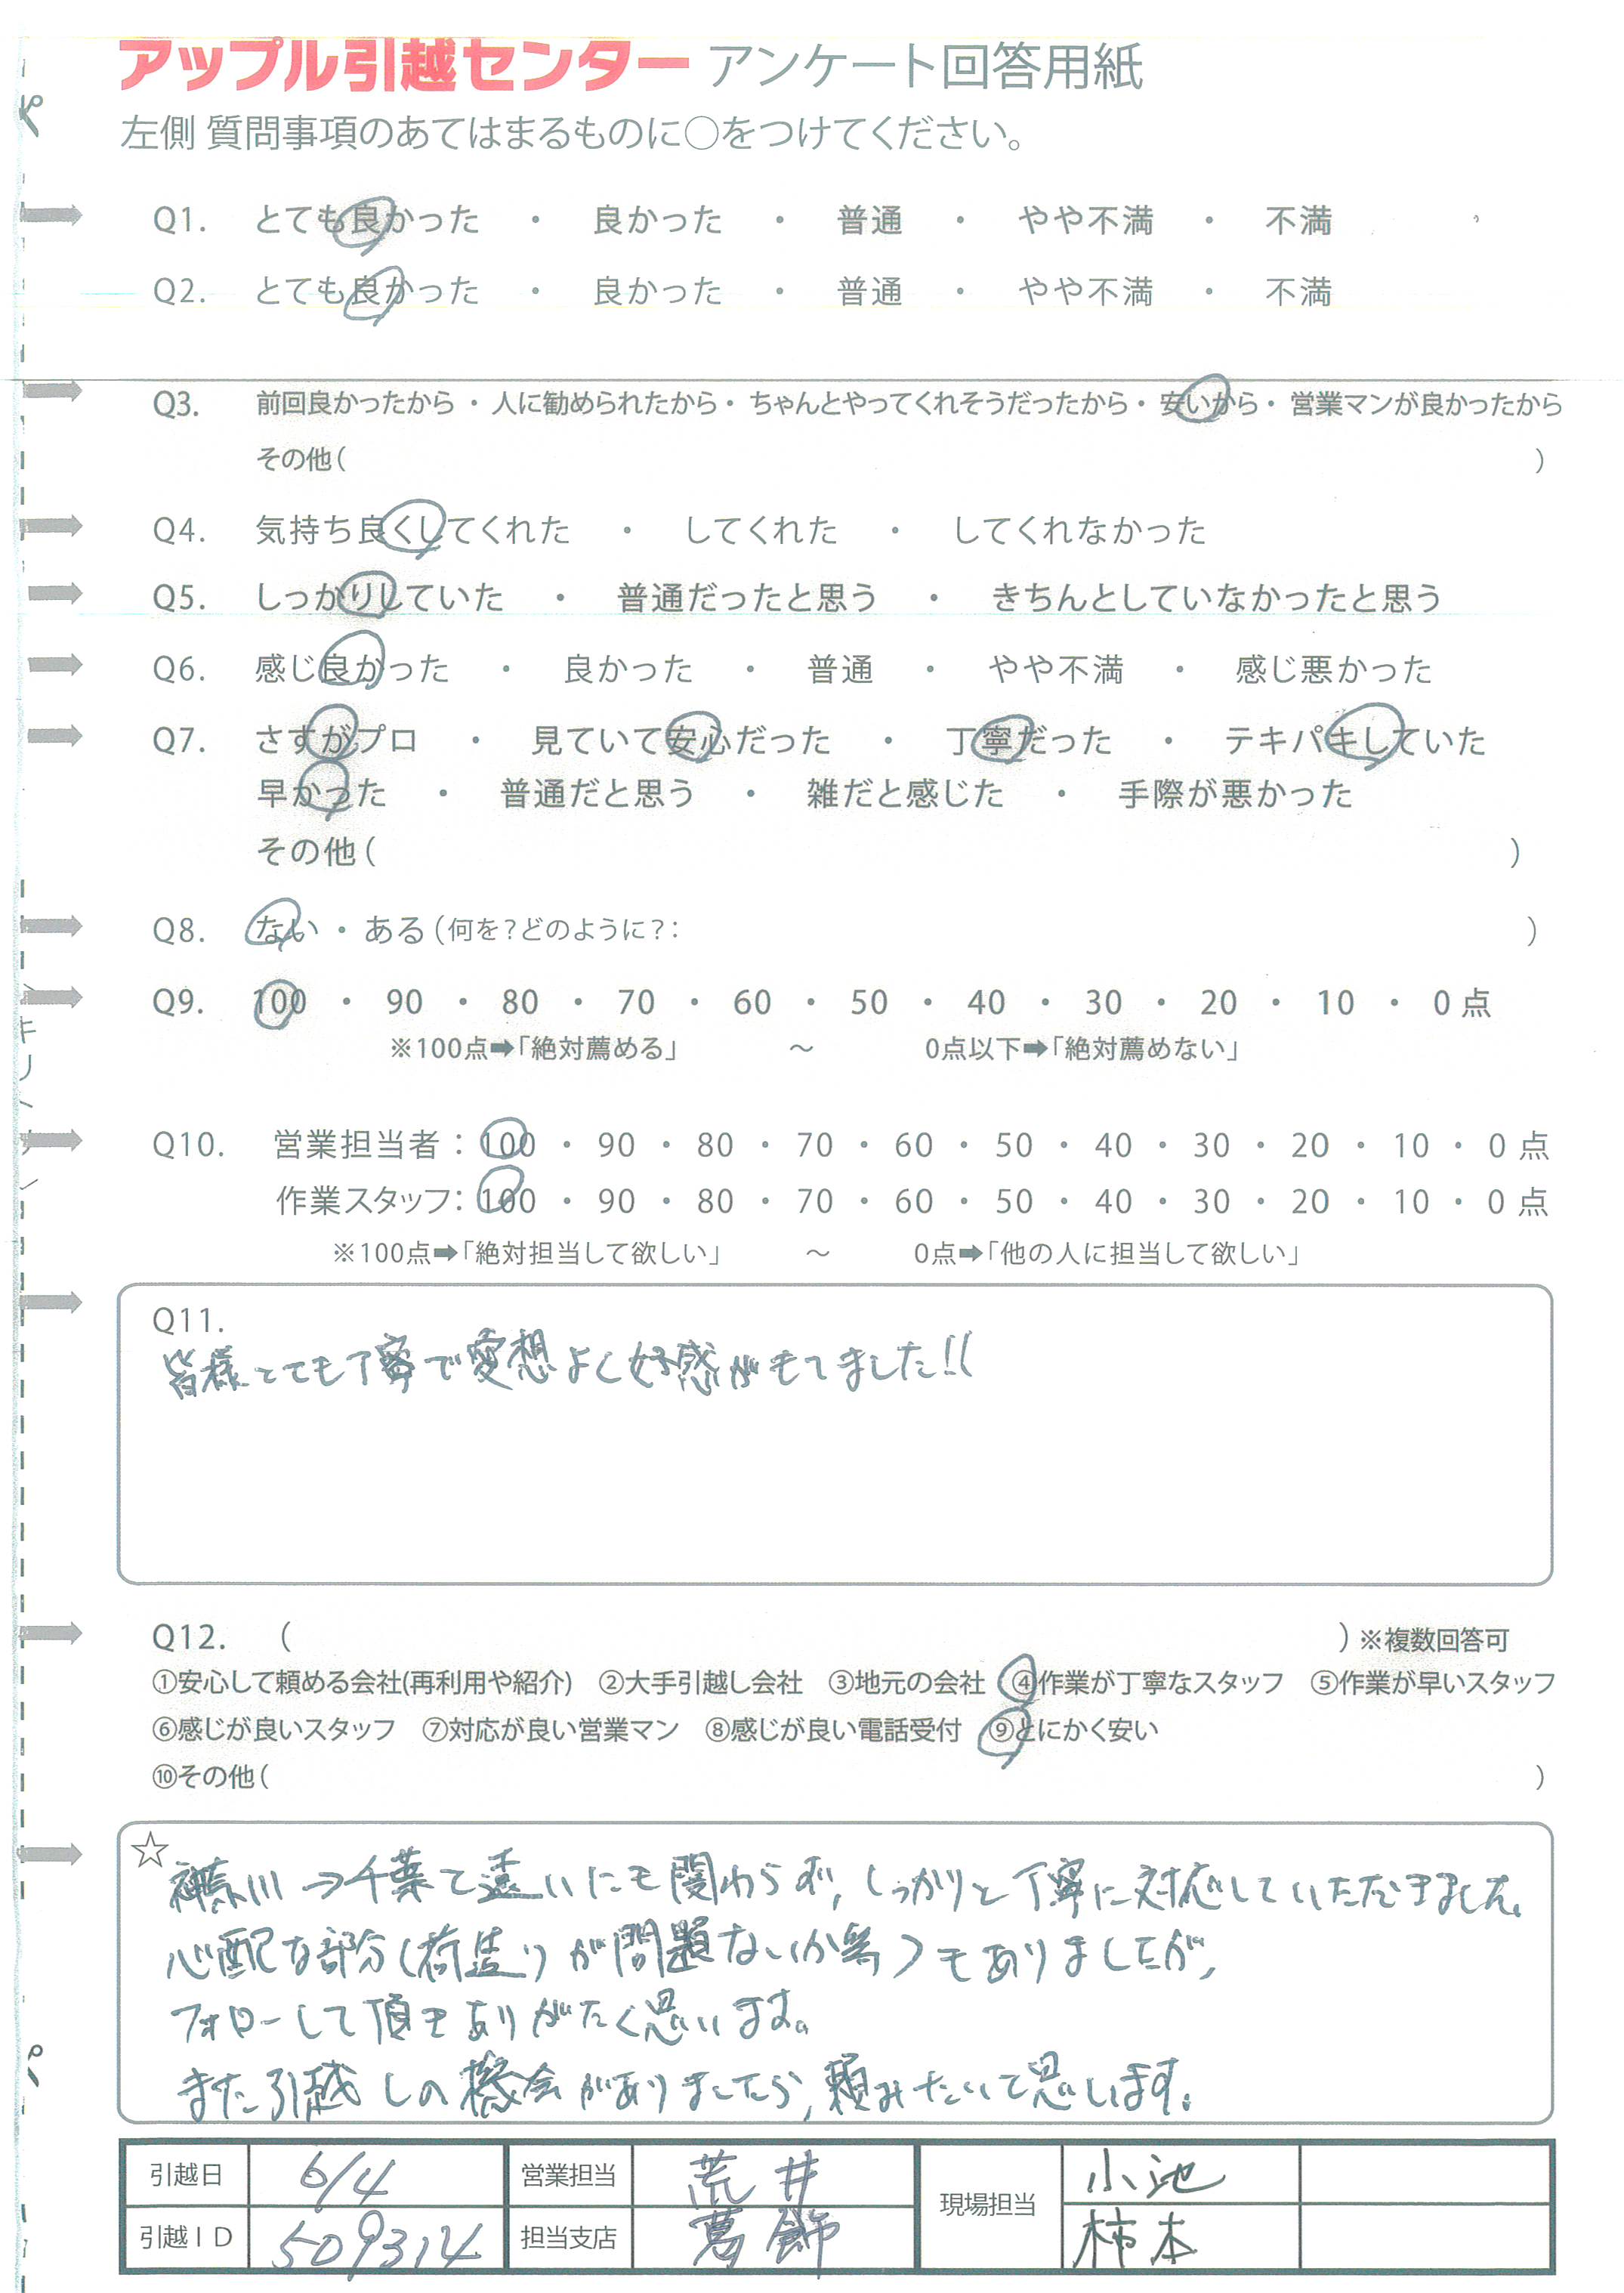 アップル引越センター アンケート回答用紙
左側 質問事項のあてはまるものに○をつけてください。
Q1. とても良かった ・ 良かった ・ 普通 ・ やや不満 ・ 不満
Q2. とても良かった ・ 良かった ・ 普通 ・ やや不満 ・ 不満
Q3. 前回良かったから・人に勧められたから・ちゃんとやってくれそうだったから・安いから・営業マンが良かったから
その他( )
Q4. 気持ち良くしてくれた ・ してくれた ・ してくれなかった
Q5. しっかりしていた ・ 普通だったと思う ・ きちんとしていなかったと思う
Q6. 感じ良かった ・ 良かった ・ 普通 ・ やや不満 ・ 感じ悪かった
Q7. さすがプロ ・ 見ていて安心だった ・ 丁寧だった ・ テキパキしていた
早かった ・ 普通だと思う ・ 雑だと感じた ・ 手際が悪かった
その他( )
Q8. ない・ある(何を?どのように?: )
Q9. 100 ・ 90 ・ 80 ・ 70 ・ 60 ・ 50 ・ 40 ・ 30 ・ 20 ・ 10 ・ 0点
※100点➡「絶対薦める」 ～ 0点以下➡「絶対薦めない」
Q10. 営業担当者：100 ・ 90 ・ 80 ・ 70 ・ 60 ・ 50 ・ 40 ・ 30 ・ 20 ・ 10 ・ 0点
作業スタッフ：100 ・ 90 ・ 80 ・ 70 ・ 60 ・ 50 ・ 40 ・ 30 ・ 20 ・ 10 ・ 0点
※100点➡「絶対担当して欲しい」 ～ 0点➡「他の人に担当して欲しい」
Q11.
皆様とても丁寧で愛想よく好感がもてました!!
Q12. ( )※複数回答可
①安心して頼める会社(再利用や紹介) ②大手引越し会社 ③地元の会社 ④作業が丁寧なスタッフ ⑤作業が早いスタッフ
⑥感じが良いスタッフ ⑦対応が良い営業マン ⑧感じが良い電話受付 ⑨とにかく安い
⑩その他( )
☆
神奈川→千葉で遠いにも関わらず、しっかりと丁寧に対応していただきました。
心配な部分(荷造りが問題ないか等)もありましたが、
フォローして頂きありがたく思います。
また引越しの機会がありましたら、頼みたいと思います。
引越日 6/4 営業担当 荒井 現場担当 小池
引越ID 509314 担当支店 葛飾 柿本
キリトリ